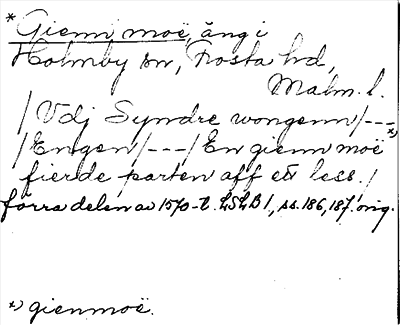 * Gienn moë, äng i
Holmby sn, Frosta hd,
Malm. l.
/ Vdj Syndre wongenn /---
/ Engen /---/ En gienn moë *)
fierde parten aff ett less. /
förra delen av 1570-t. LSLB 1, ss. 186, 187. orig.
*) gienmoë.